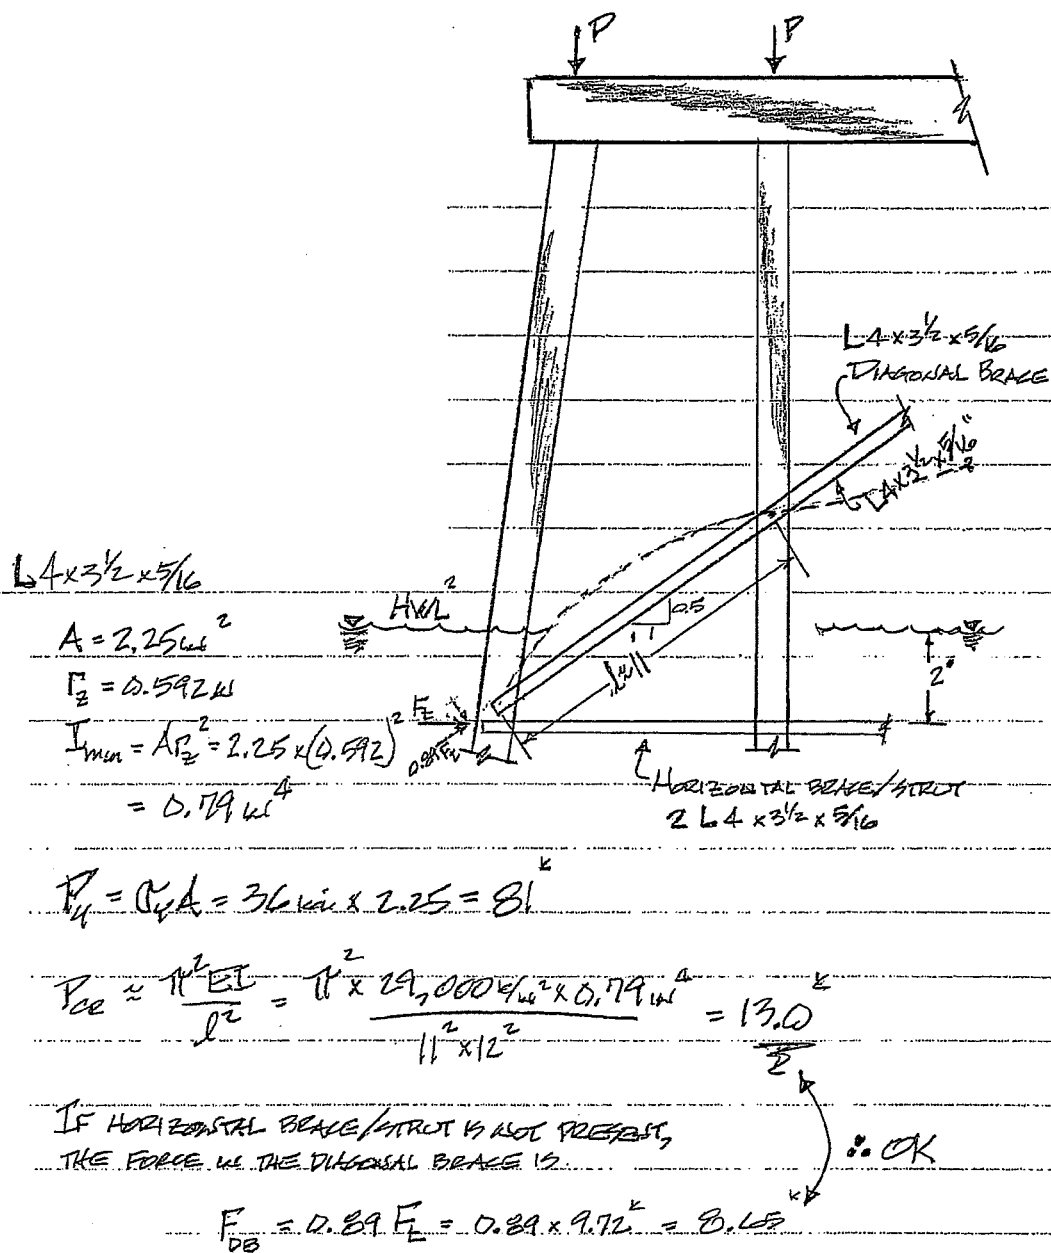 P P
L 4 x 3 1/2 x 5/16
DIAGONAL BRACE
L 4 x 3 1/2 x 5/16"
L 4 x 3 1/2 x 5/16
HWL
0.5
1
l ≈ 11'
2'
A = 2.25 in²
r_z = 0.592 in
I_min = A r_z² = 2.25 x (0.592)²
= 0.79 in⁴
F_L
0.89 F_L
HORIZONTAL BRACE/STRUT
2 L 4 x 3 1/2 x 5/16
P_y = σ_y A = 36 ksi x 2.25 = 81 k
P_CR ≈ π²EI / l² = π² x 29,000 k/in² x 0.79 in⁴ / 11² x 12² = 13.0 k
IF HORIZONTAL BRACE/STRUT IS NOT PRESENT,
THE FORCE IN THE DIAGONAL BRACE IS
∴ OK
F_DB = 0.89 F_L = 0.89 x 9.72 k = 8.65 k